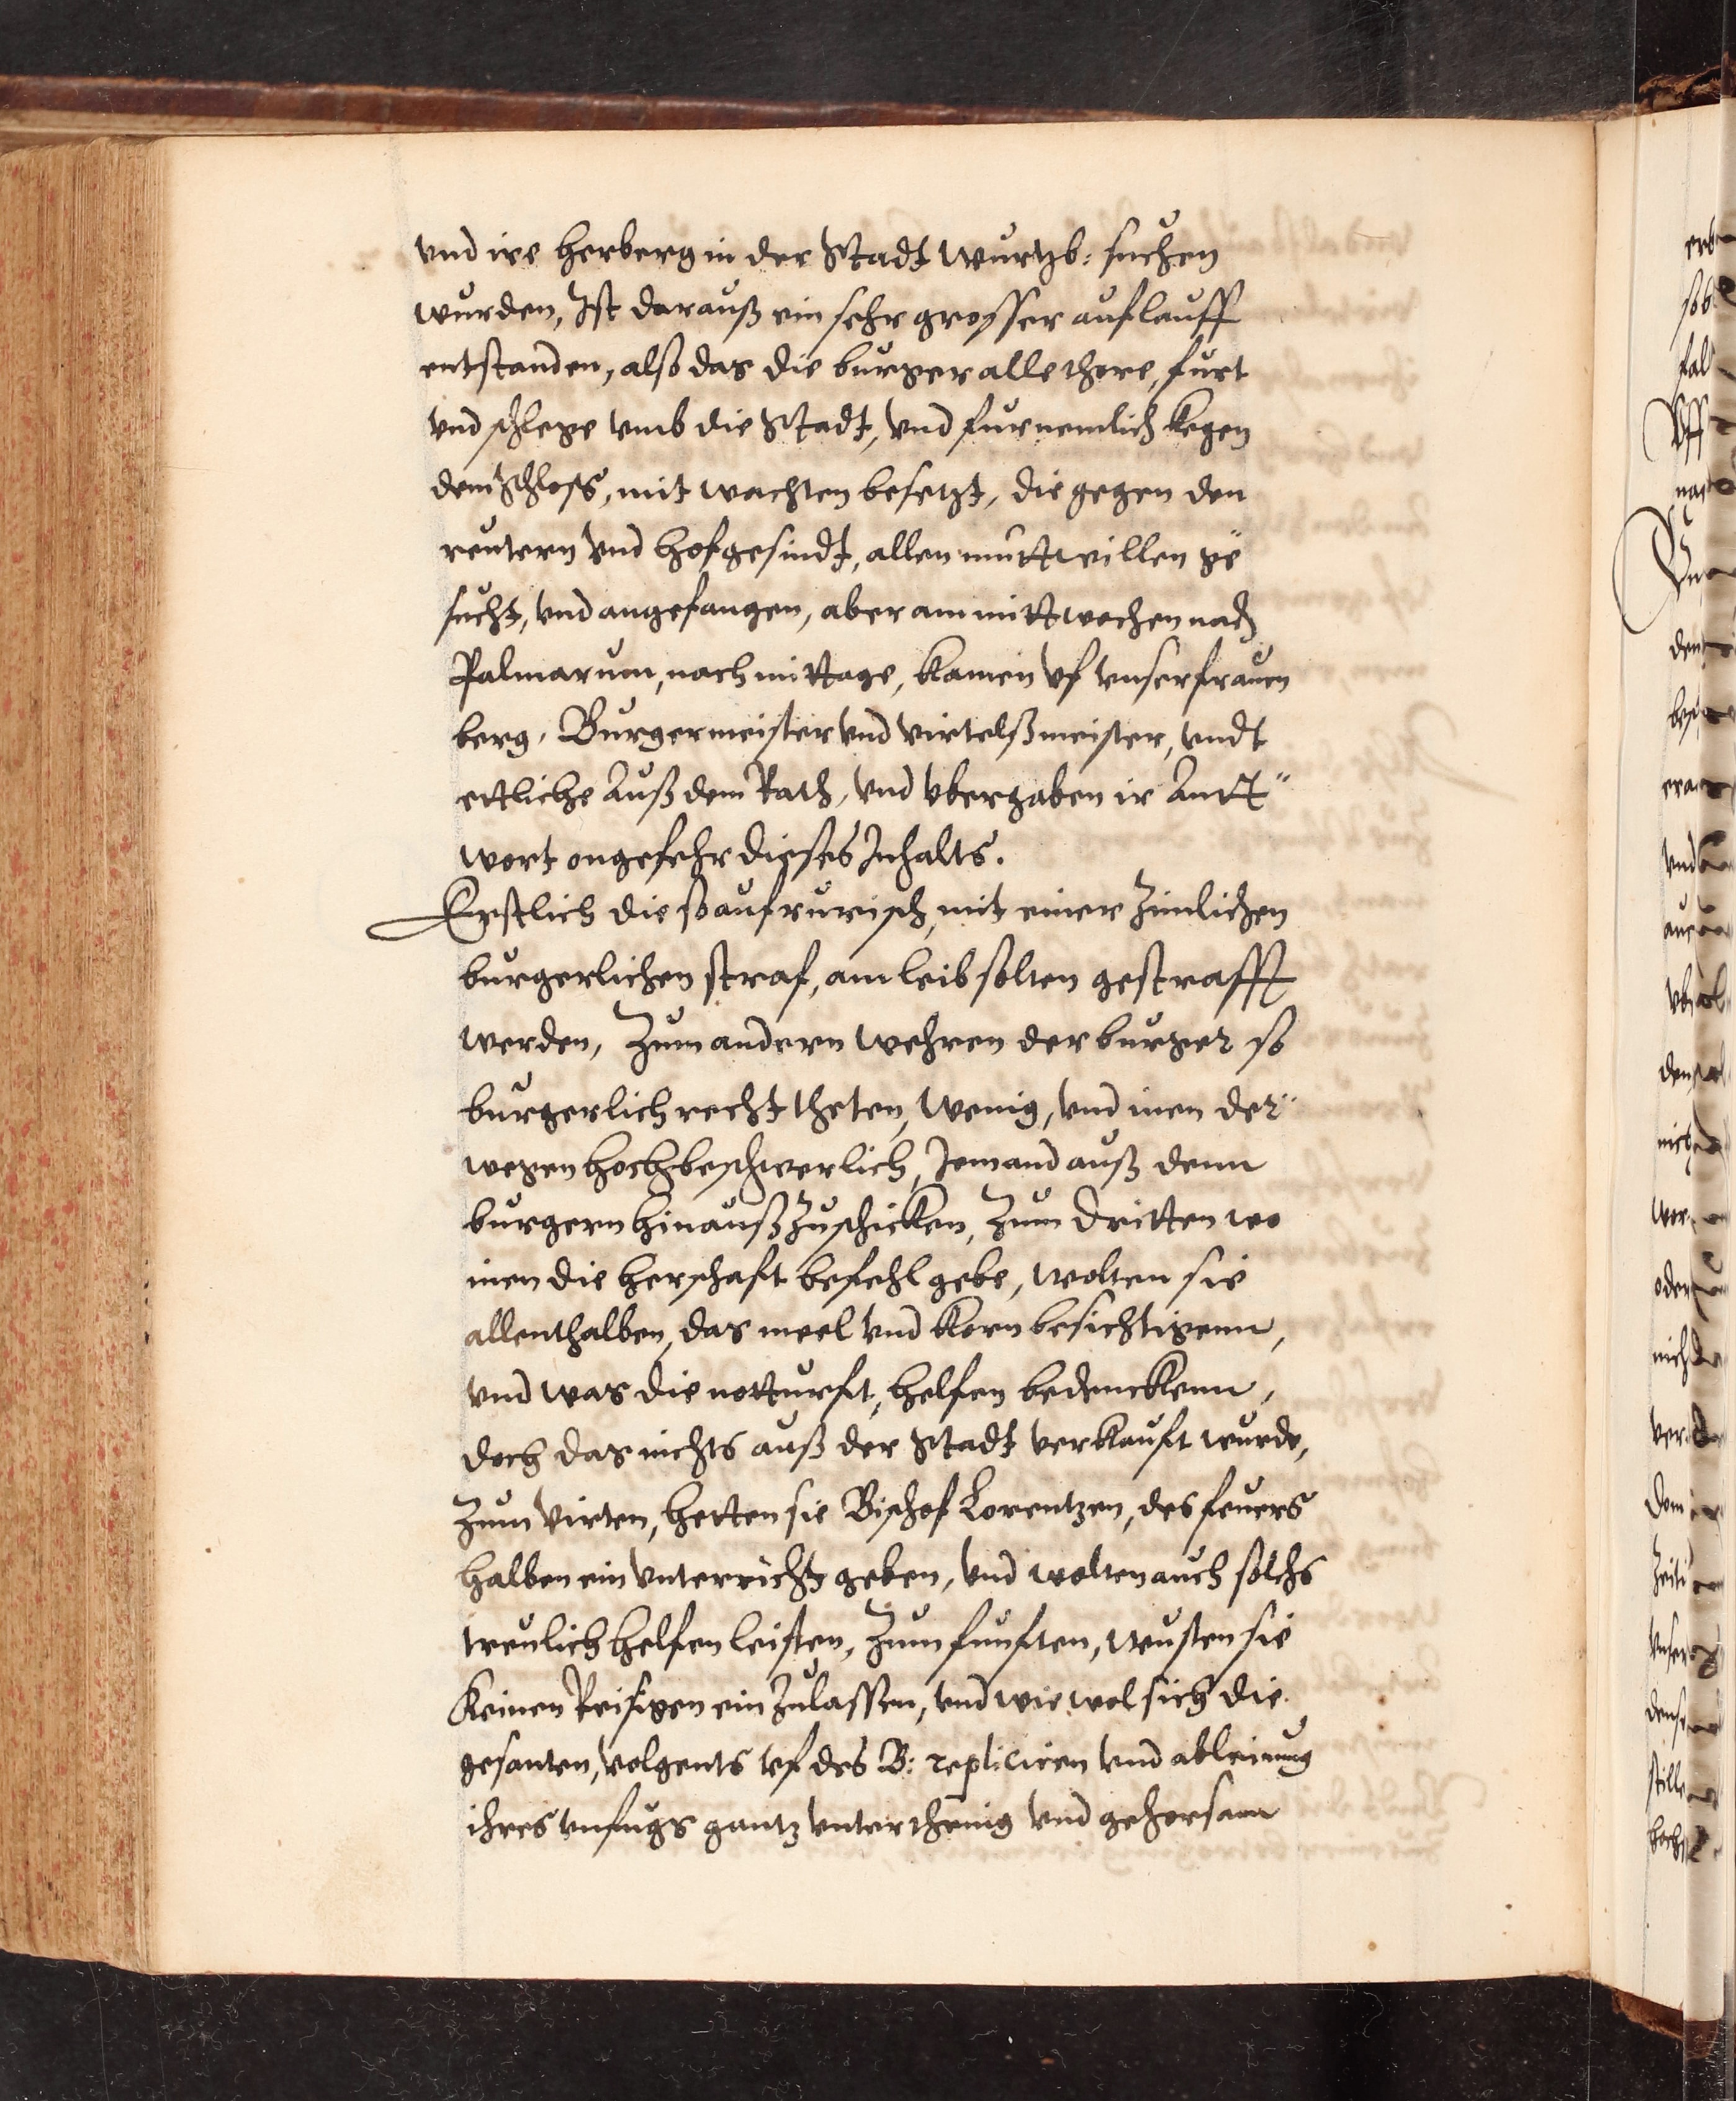 vnd ire herberg in der Stadt wurtzb: suchen
wurden, Ist darauß ein sehr grosser auflauff
entstanden, also das die burger alle thore, furt
vnd schlege vmb die Stadt, vnd furnemlich kegen
dem Schloss, mit wachten besetzt, die gegen den
reutern vnd hofgesindt, allen muttwillen ge
sucht, vnd angefangen, aber am mittwochen nach
Palmarum, nach mittage, kamen vf vnserfrauen
berg, Burgermeister vnd virtelßmeister, vndt
ettliche Auß dem Rath, vnd vbergaben ir Antt"
wort ongefehr dieses Inhalts.
Erstlich die so aufrurisch, mit einer zimlichen
burgerlichen straf, am leib solten gestrafft
werden, Zum andern wehren der burger so
burgerlich recht theten, wenig, vnd inen der"
wegen hochbeschwerlich, Jemand auß denn
burgern hinauß zuschicken, Zum dritten wo
inen die herschaft befehl gebe, wolten sie
allenthalben, das meel vnd korn besichtigenn,
vnd was die notturft, helfen bedenckenn,
doch das nichts auß der Stadt verkauft wurde,
Zum virten, hetten sie Bischof Lorentzen, des feuers
halben ein vnterricht geben, vnd wolten auch solchs
treulich helfen leisten, Zum funften, wusten sie
keinen Reisigen ein zulassen, vnd wie wol sich die
gesanten, volgents vf des B: repliciren vnd ableinung
ihres vnfugs gantz vnterthenig vnd gehorsam